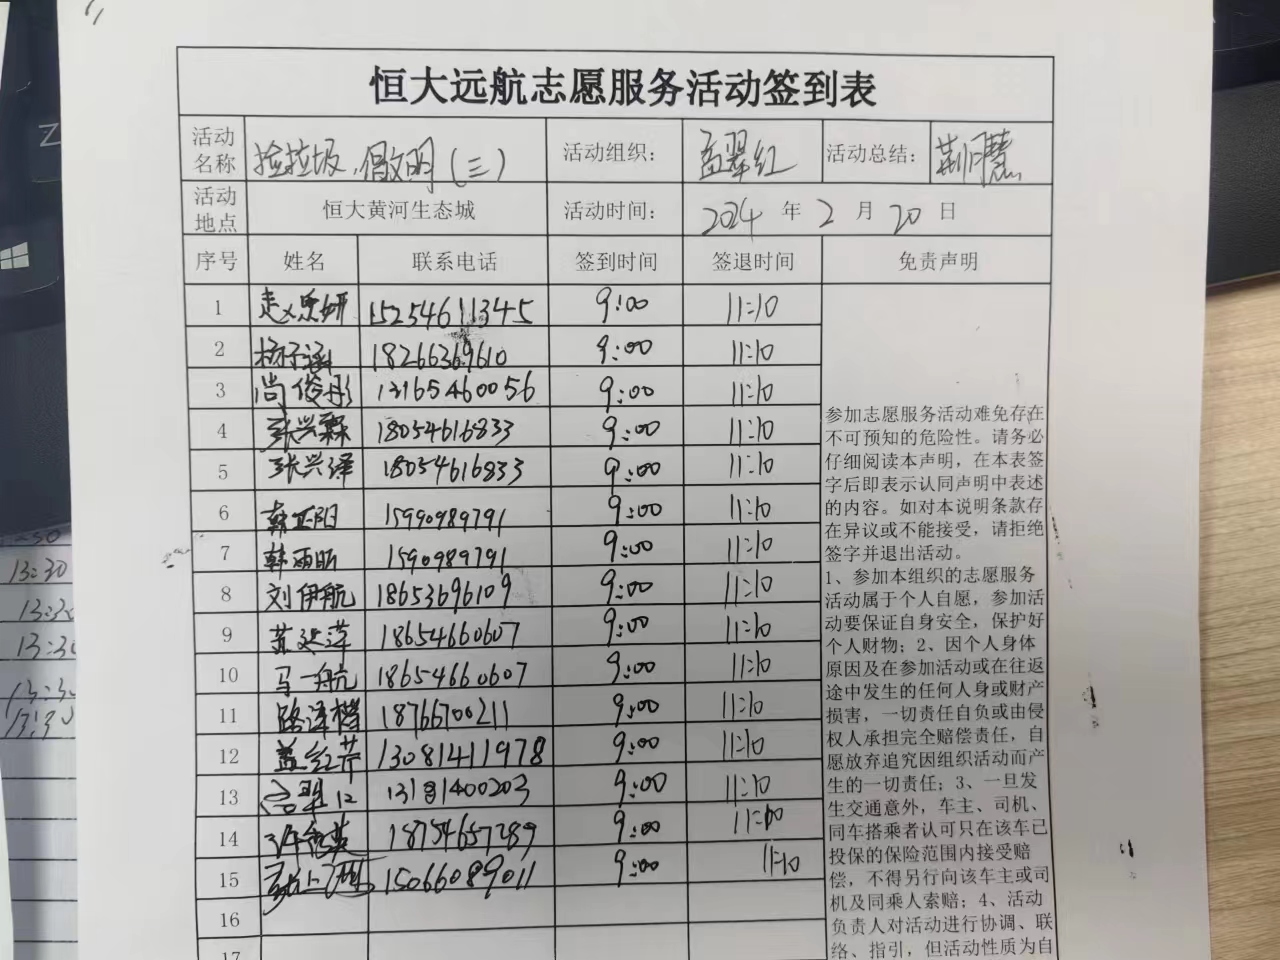 恒大远航志愿服务活动签到表
活动名称 捡垃圾、倡文明(三) 活动组织: 孟翠红 活动总结: 荆慧
活动地点 恒大黄河生态城 活动时间: 2024 年 2 月 20 日
序号 姓名 联系电话 签到时间 签退时间 免责声明
1 赵思妍 15254611345 9:00 11:10
2 杨子涵 18266369610 9:00 11:10
3 尚俊彤 13165460056 9:00 11:10
4 张兴霖 18054616833 9:00 11:10
5 张兴泽 18054616833 9:00 11:10
6 韩正阳 15990989791 9:00 11:10
7 韩雨昕 1590989791 9:00 11:10
8 刘伊航 18653696109 9:00 11:10
9 18654660607 9:00 11:10
10 马一航 18654660607 9:00 11:10
11 18766700211 9:00 11:10
12 盖红芹 13081411978 9:00 11:10
13 13181400203 9:00 11:10
14 18754657289 9:00
15 15066089011 9:00 11:10
16
17
参加志愿服务活动难免存在
不可预知的危险性。请务必
仔细阅读本声明，在本表签
字后即表示认同声明中表述
的内容。如对本说明条款存
在异议或不能接受，请拒绝
签字并退出活动。
1、参加本组织的志愿服务
活动属于个人自愿，参加活
动要保证自身安全，保护好
个人财物；2、因个人身体
原因及在参加活动或在往返
途中发生的任何人身或财产
损害，一切责任自负或由侵
权人承担完全赔偿责任，自
愿放弃追究因组织活动而产
生的一切责任；3、一旦发
生交通意外，车主、司机、
同车搭乘者认可只在该车已
投保的保险范围内接受赔
偿，不得另行向该车主或司
机及同乘人索赔；4、活动
负责人对活动进行协调、联
络、指引，但活动性质为自
13:30
13:30
13:30
13:30